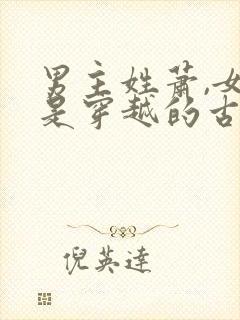 男主姓萧,女
是穿越的古
倪英達